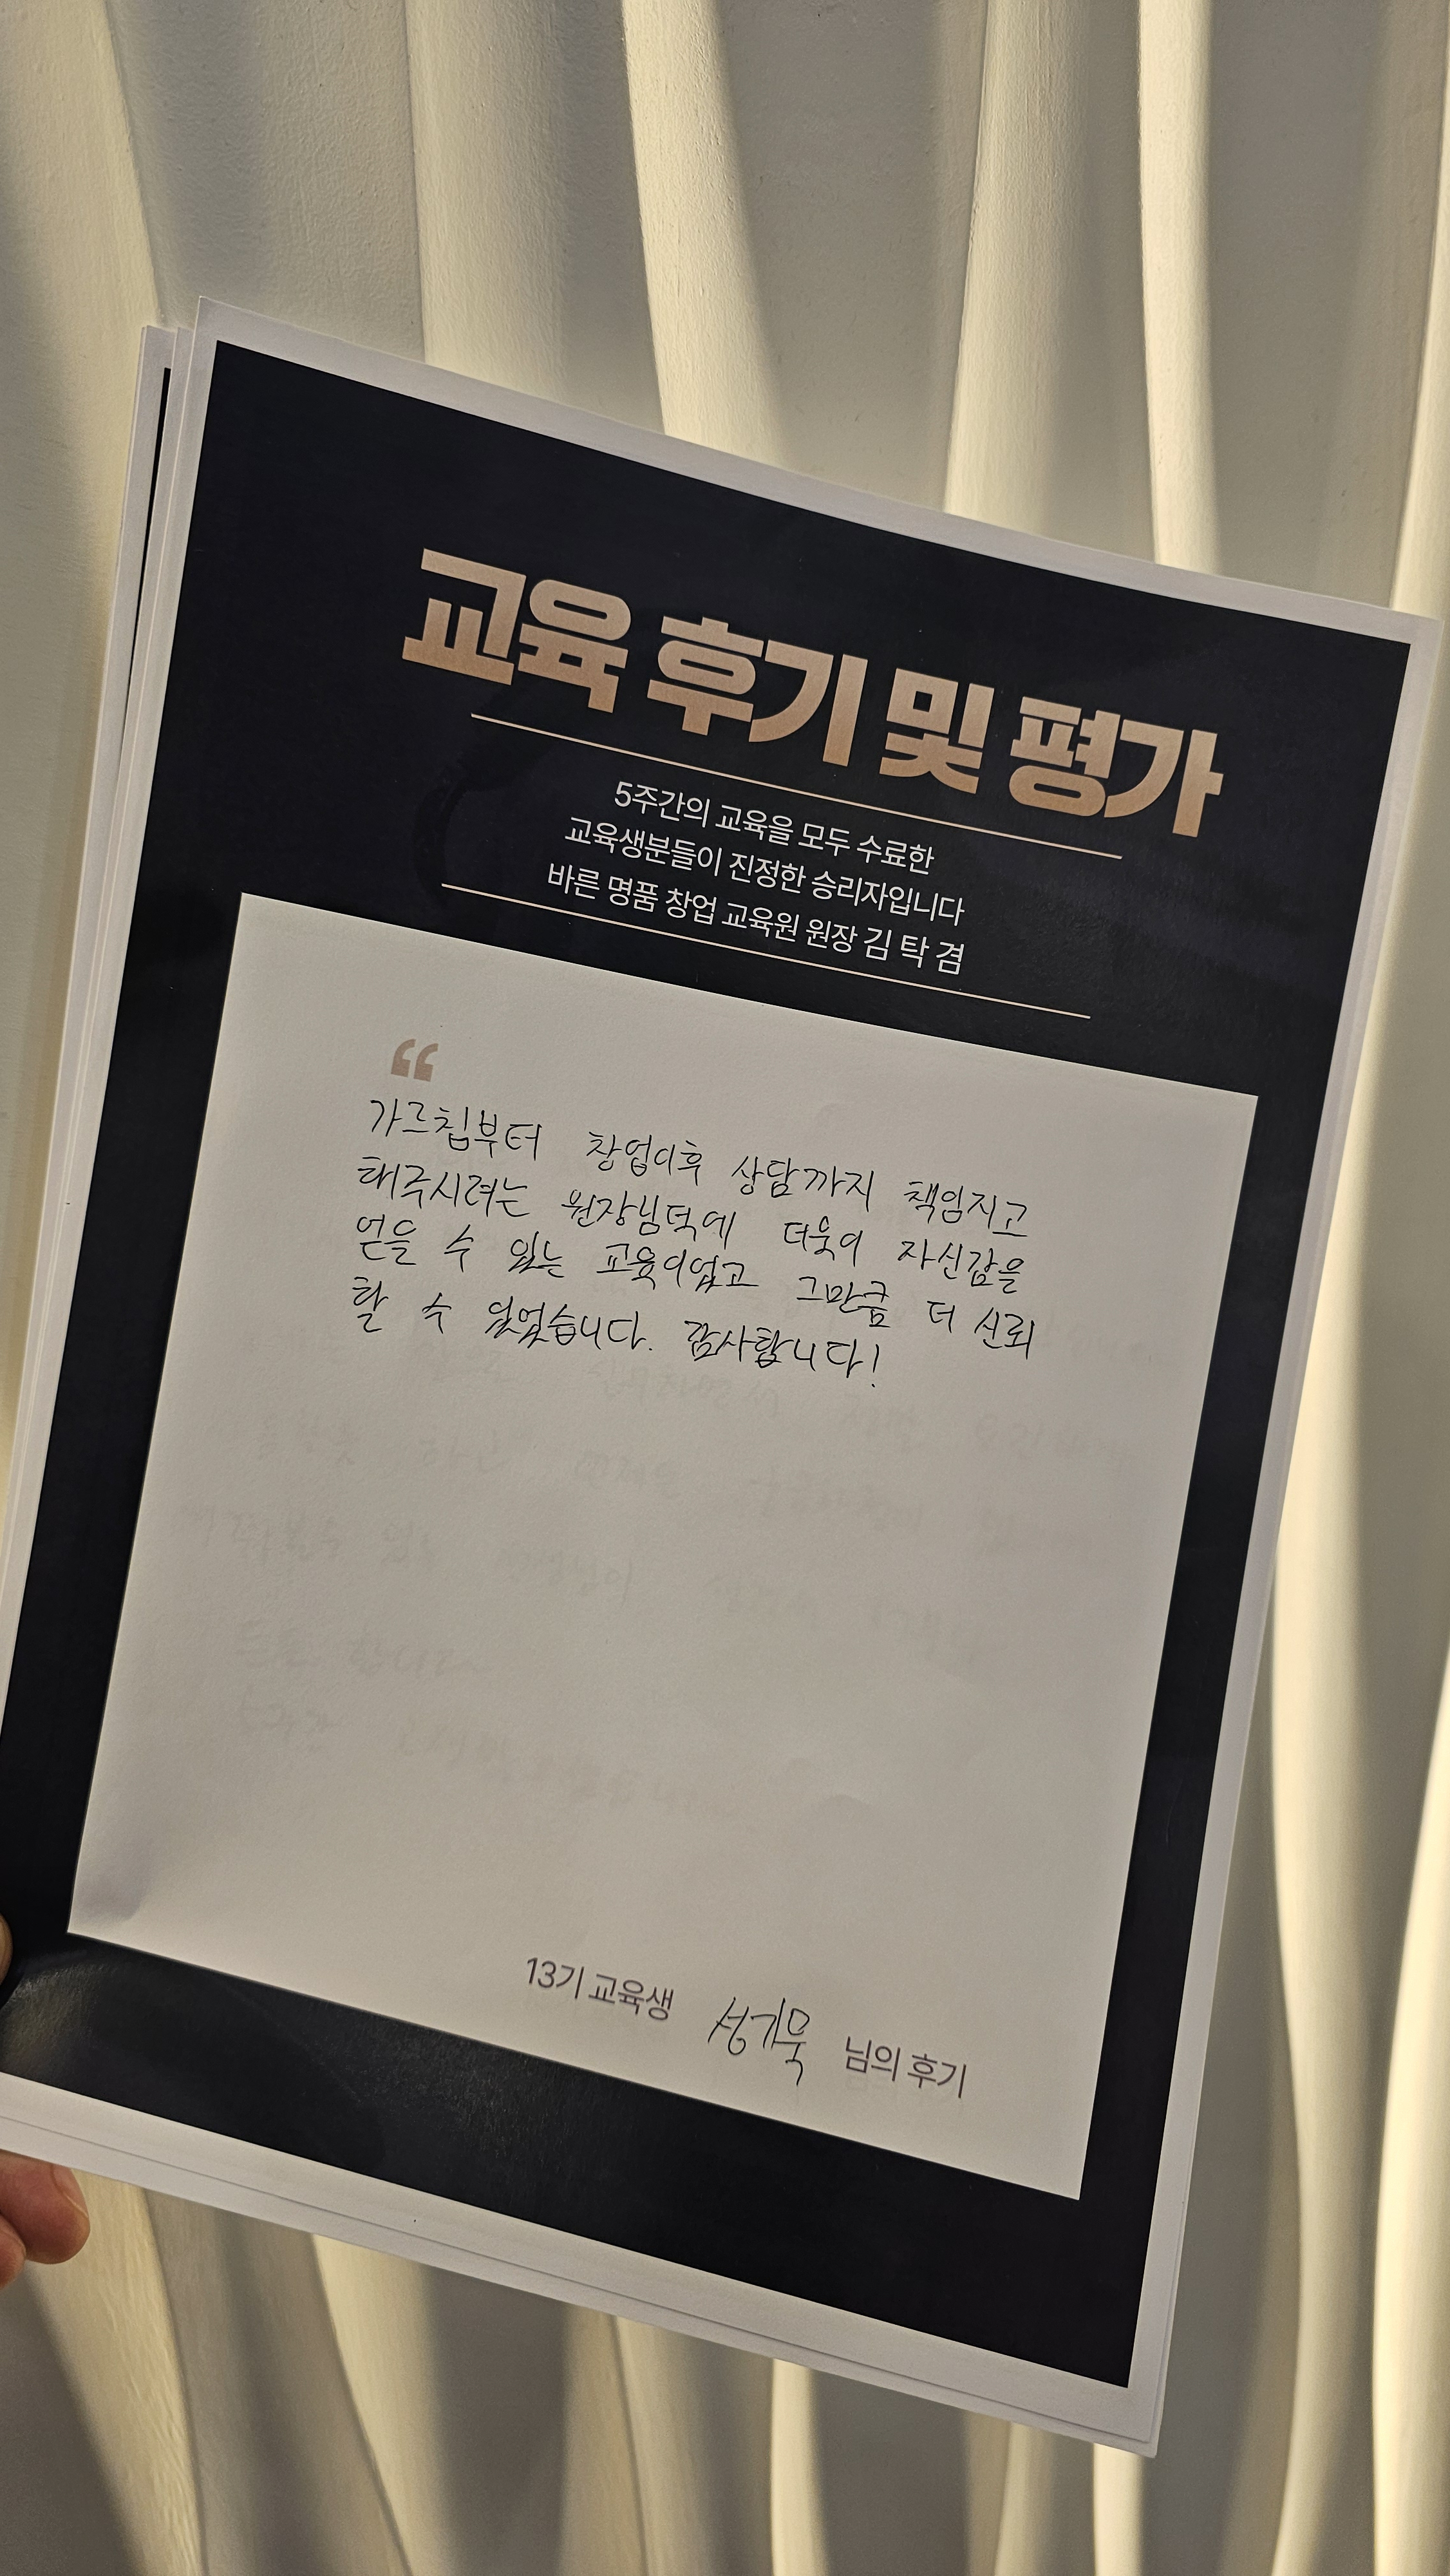 교육 후기 및 평가
5주간의 교육을 모두 수료한
교육생분들이 진정한 승리자입니다
바른 명품 창업 교육원 원장 김 탁 겸
“
가르침부터 창업이후 상담까지 책임지고
해주시려는 원장님덕에 더욱이 자신감을
얻을 수 있는 교육이었고 그만큼 더 신뢰
할 수 있었습니다. 감사합니다!
13기 교육생 님의 후기